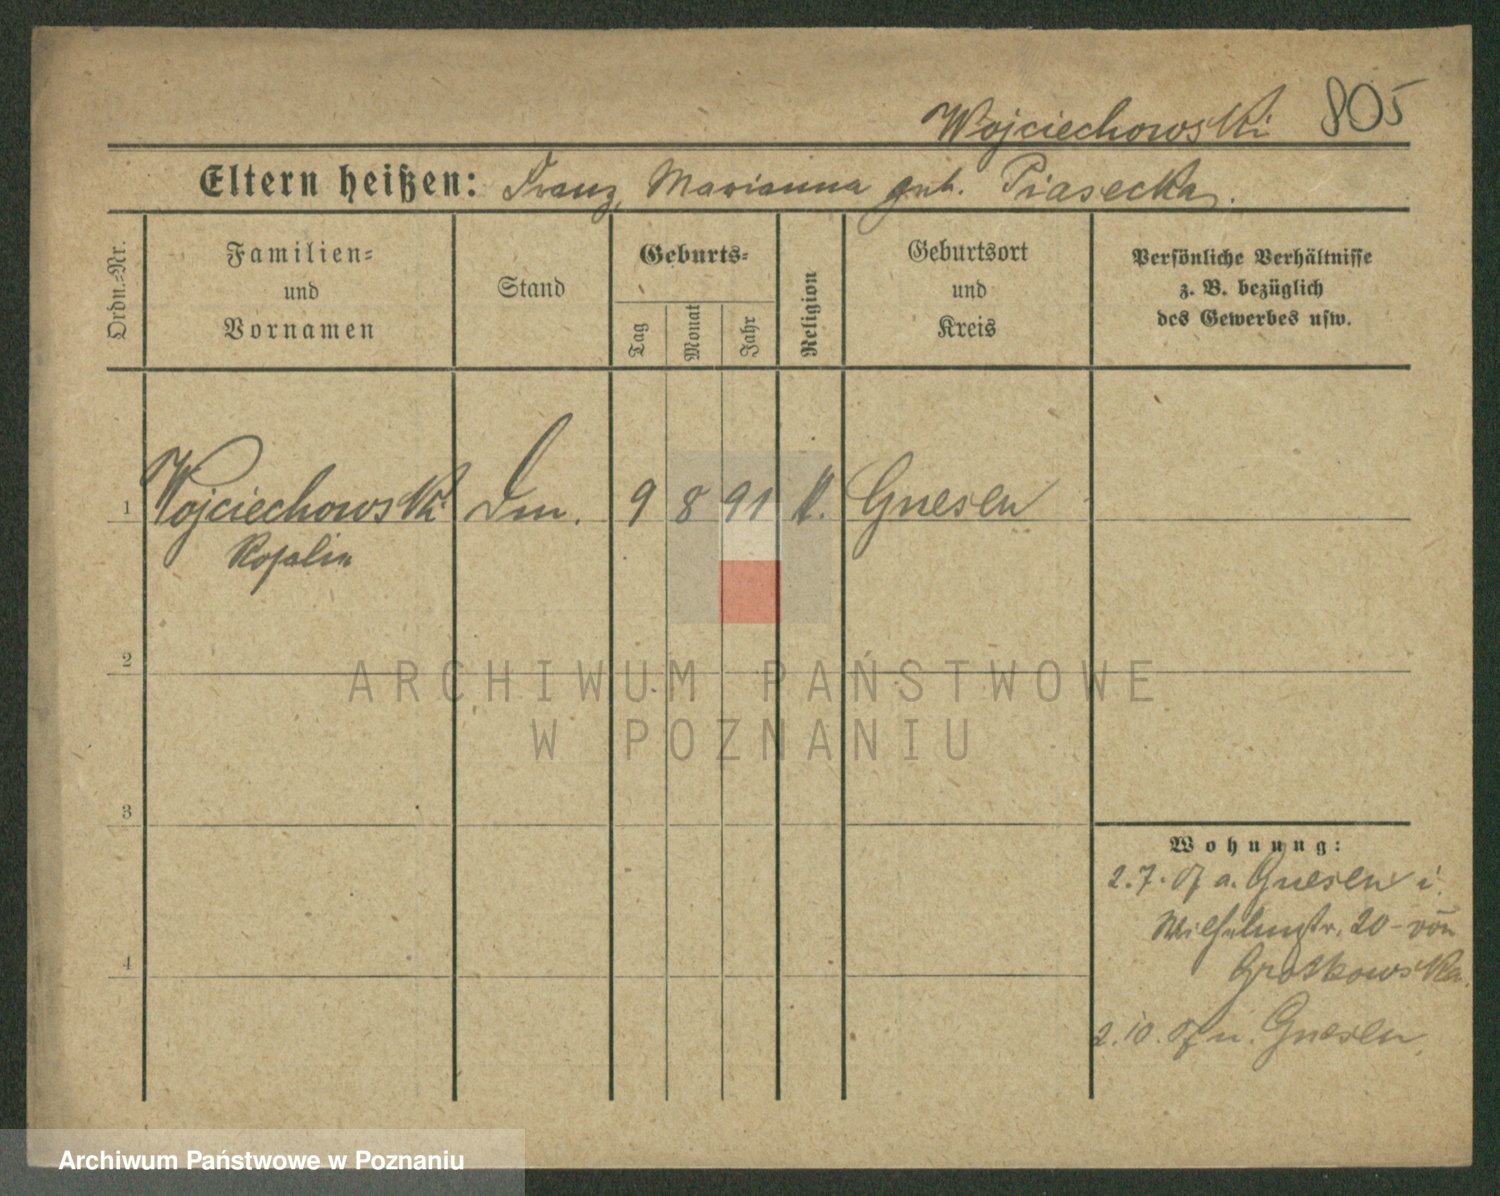 Wojciechowski 805
Eltern heißen: Franz, Marianna geb. Piasecka.
Ordn.=Nr.
Familien=
und
Vornamen
Stand
Geburts=
Tag
Monat
Jahr
Religion
Geburtsort
und
Kreis
Persönliche Verhältnisse
z. B. bezüglich
des Gewerbes usw.
1 Wojciechowski 9 8 91 K. Gnesen
Rosalie
2
ARCHIWUM PAŃSTWOWE
W POZNANIU
3
Wohnung:
2.7.07 a. Gnesen i.
Wilhelmstr. 20 - von
Grotkowska.
4
2.10.07 n. Gnesen.
Archiwum Państwowe w Poznaniu